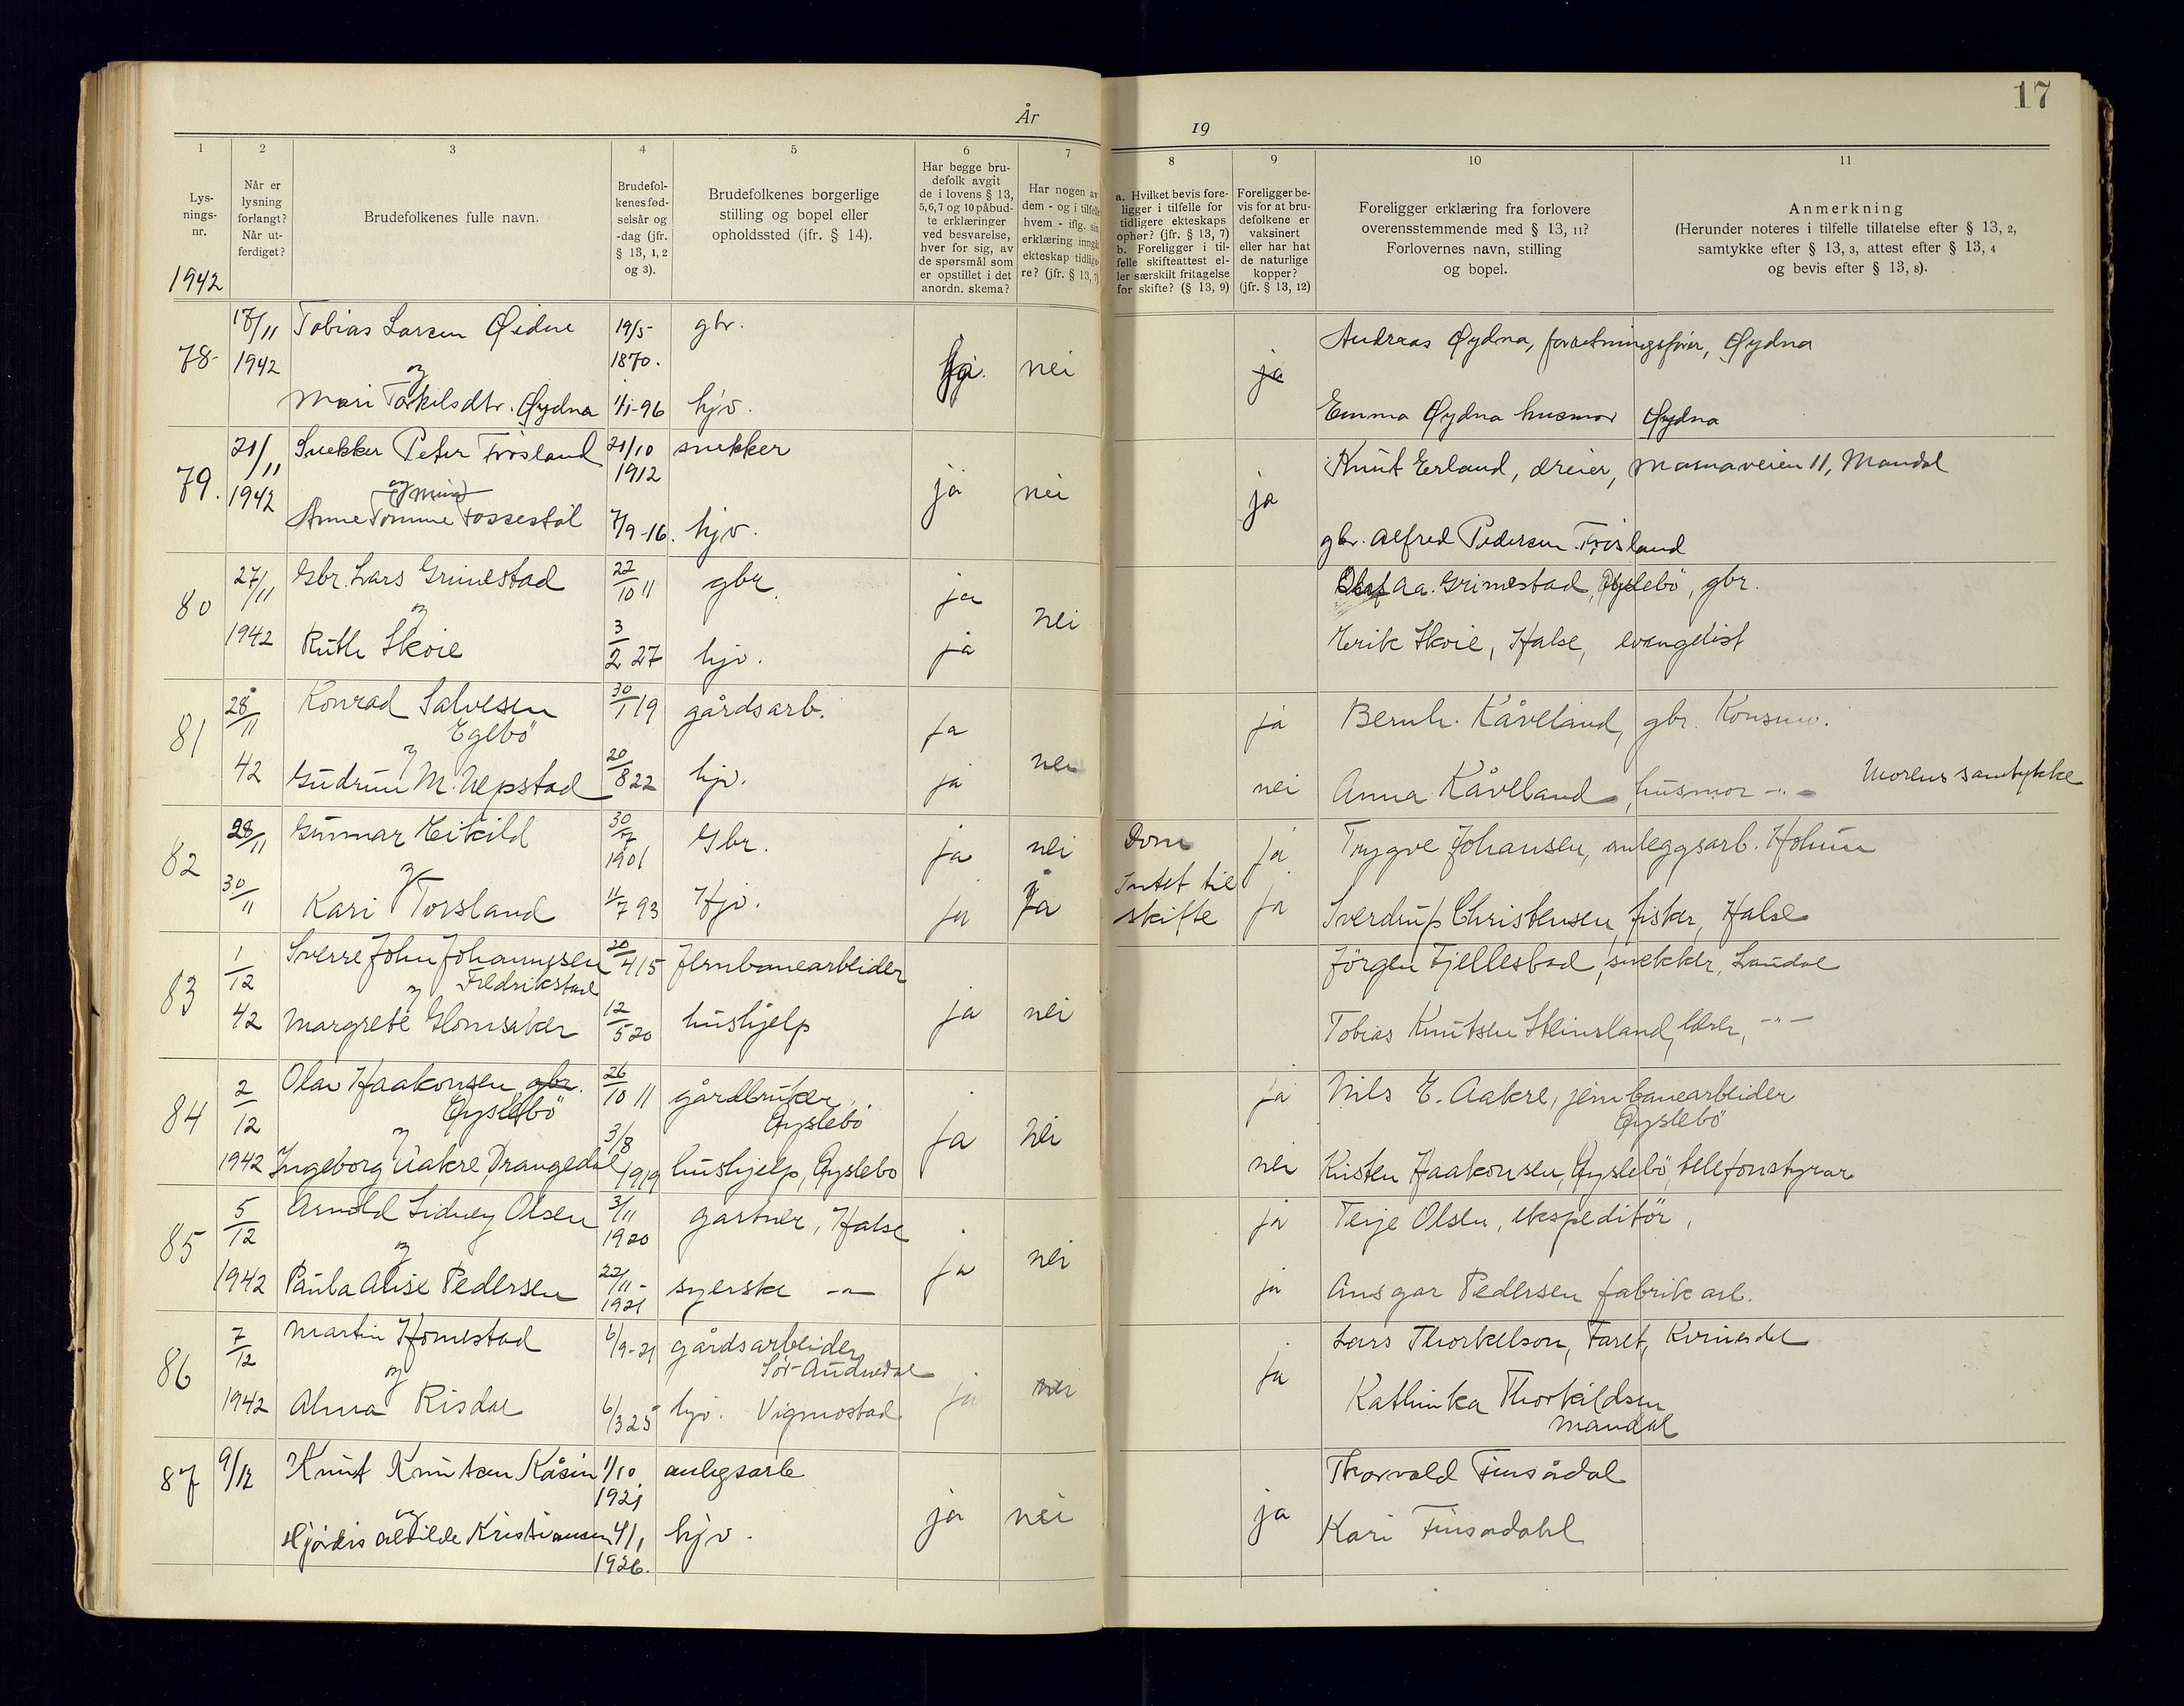 17
År
19
1
2
3
4
5
6
7
8
9
10
11
Lys-
nings-
nr.
1942
Når er
lysning
forlangt?
Når ut-
ferdiget?
Brudefolkenes fulle navn.
Brudefol-
kenes fød-
selsår og
-dag (jfr.
§ 13, 1, 2
og 3).
Brudefolkenes borgerlige
stilling og bopel eller
opholdssted (jfr. § 14).
Har begge bru-
defolk avgit
de i lovens § 13,
5,6,7 og 10 påbud-
te erklæringer
ved besvarelse,
hver for sig, av
de spørsmål som
er opstillet i det
anordn. skema?
Har nogen av
dem - og i tilfelle
hvem - iflg. sin
erklæring inngå
ekteskap tidlige-
re? (jfr. § 13, 7)
a. Hvilket bevis fore-
ligger i tilfelle for
tidligere ekteskaps
ophør? (jfr. § 13, 7)
b. Foreligger i til-
felle skifteattest el-
ler særskilt fritagelse
for skifte? (§ 13, 9)
Foreligger be-
vis for at bru-
defolkene er
vaksinert
eller har hat
de naturlige
kopper?
(jfr. § 13, 12)
Foreligger erklæring fra forlovere
overensstemmende med § 13, 11?
Forlovernes navn, stilling
og bopel.
Anmerkning
(Herunder noteres i tilfelle tillatelse efter § 13, 2,
samtykke efter § 13, 3, attest efter § 13, 4
og bevis efter § 13, 8).
78 17/11 Tobias Larsen Øidne 19/5- gbr. Andreas Øydna, forretningsfører, Øydna
1942 og 1870. ja. nei ja
Mari Torkilsdtr. Øydna 1/1-96 hjv. Emma Øydna husmor Øydna
79. 21/11 Snekker Peter Trösland 21/10 snekker Knut Erland, dreier, Marnaveien 11, Mandal
1942 og 1912 ja nei ja
Anne Tomine Fossestöl 7/9-16. hjv. gbr. Alfred Pedersen Trösland
80 27/11 Gbr. Lars Grimestad 22/10 11 gbr. ja nei Olaf Aa. Grimestad, Öyslebö, gbr.
1942 og Ruth Skoie 3/2 27 hjv. ja Erik Skoie, Halse, evangelist
81 28/11 Konrad Salvesen 30/1 19 gårdsarb. ja ja Bernh. Kåveland, gbr. Konsmo.
Eglebö
42 og Gudrun M. Uepstad 20/8 22 hjv. ja nei nei Anna Kåveland, husmor -"- Morens samtykke
82 28/11 Gunnar Eikild 30/7 1901 Gbr. ja nei Dom ja Trygve Johansen, anleggsarb. Holum
30/11 og Kari Torsland 11/7 93 Hjv. ja Ja Intet til skifte ja Sverdrup Christensen, fisker, Halse
83 1/12 Sverre John Johannesen 20/4 15 Jernbanearbeider Jörgen Fjellestad, snekker, Laudal
Fredrikstad
42 og Margrete Glomsaker 12/5 20 hushjelp ja nei Tobias Knutsen Steinsland, lærer, -"-
84 2/12 Olav Haakonsen, gbr. 26/10 11 gårdbruker ja Nils E. Aakre, jernbanearbeider
Öyslebö Öyslebö Öyslebö
1942 og Ingeborg Aakre, Drangedal 3/8 1919 hushjelp, Öyslebö ja nei nei Kristen Haakonsen, Öyslebö, telefonstyrar
85 5/12 Arnold Sidney Olsen 3/11 1920 gartner, Halse ja Terje Olsen, ekspeditör,
1942 og Paula Alise Pedersen 22/11- 1921 syerske -"- ja nei ja Ansgar Pedersen fabrikarb.
86 7/12 Martin Homestad 6/9-21 gårdsarbeider Lars Thorkelson, Faret, Kvinesdal
Sör-Audnedal
1942 og Alma Risdal 6/3 25 hjv. Vigmostad. ja nei ja Kathinka Thorkildsen
Mandal
87 9/12 Knut Knutsen Kåsin 1/10 1921 anlegsarb Thorvald Finsådal
og ja nei ja
Hjördis Alvilde Kristiansen 4/1 1926. hjv. Kari Finsådahl